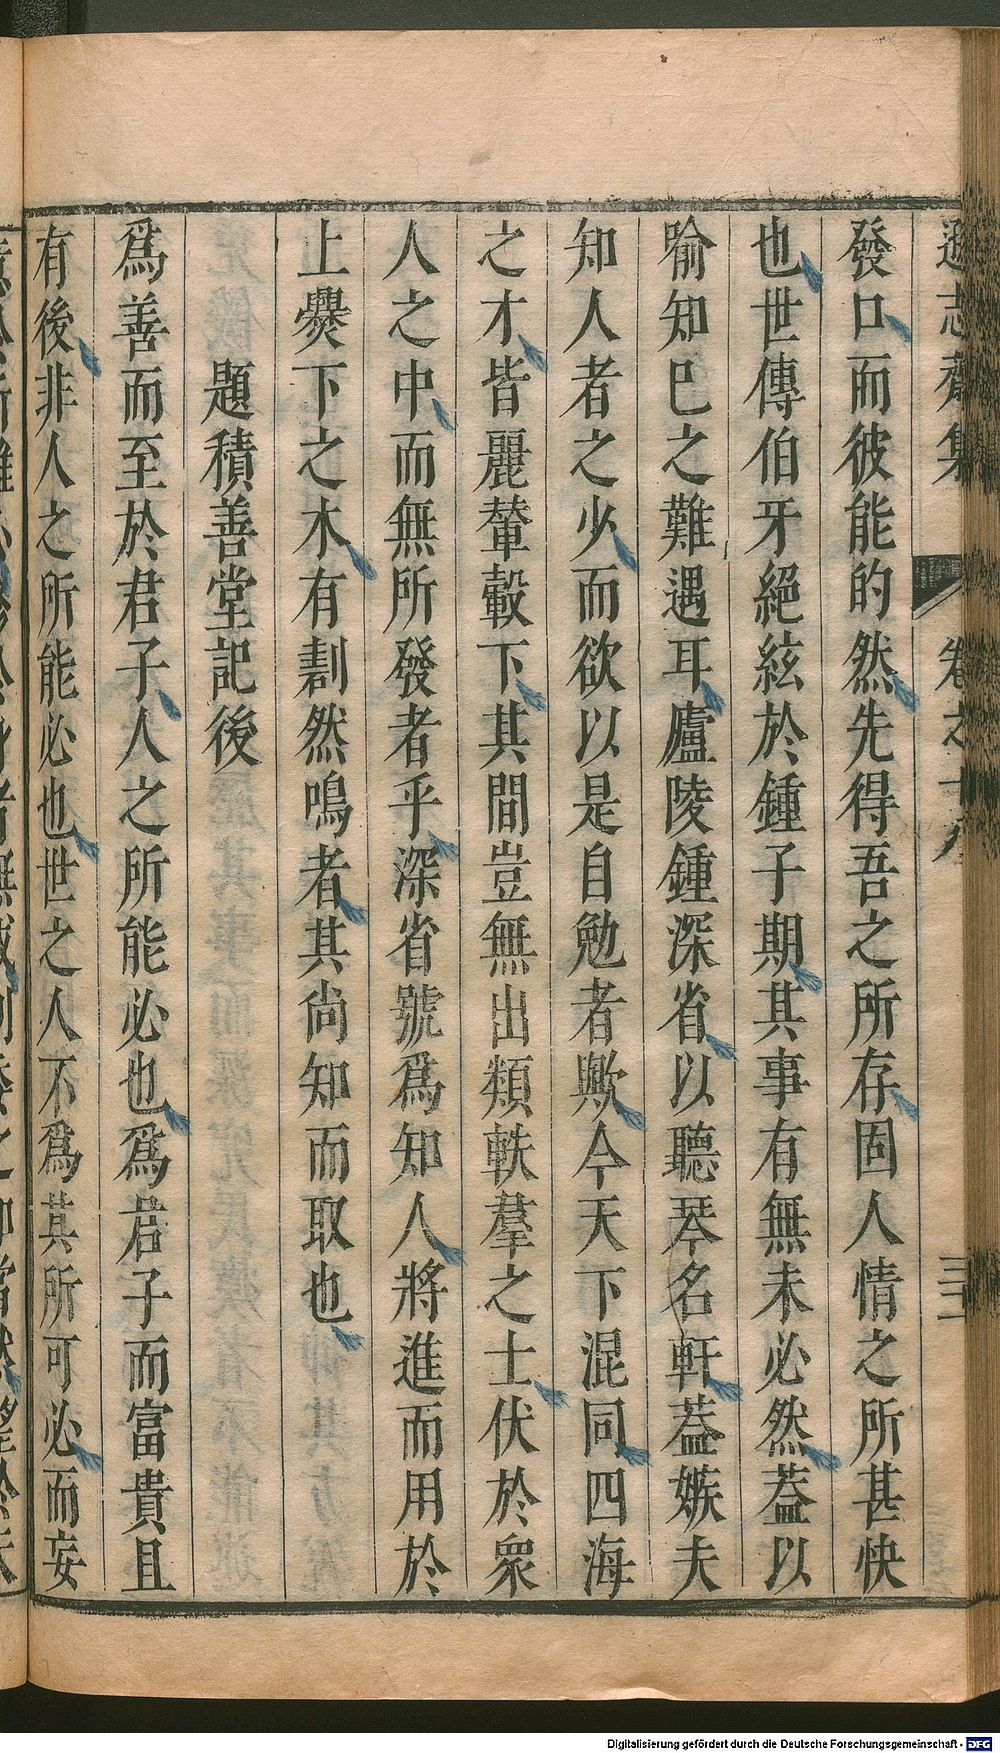 遜志齋集 卷之十八 三二
發口而彼能的然先得吾之所存固人情之所甚快
也世傳伯牙絕絃於鍾子期其事有無未必然葢以
喻知巳之難遇耳廬陵鍾深省以聽琴名軒葢嫉夫
知人者之少而欲以是自勉者歟今天下混同四海
之才皆麗輦轂下其間豈無出類軼羣之士伏於衆
人之中而無所發者乎深省號爲知人將進而用於
上爨下之木有劃然鳴者其尚知而取也
題積善堂記後
爲善而至於君子人之所能必也爲君子而富貴且
有後非人之所能必也世之人不爲其所可必而妄
Digitalisierung gefördert durch die Deutsche Forschungsgemeinschaft - DFG